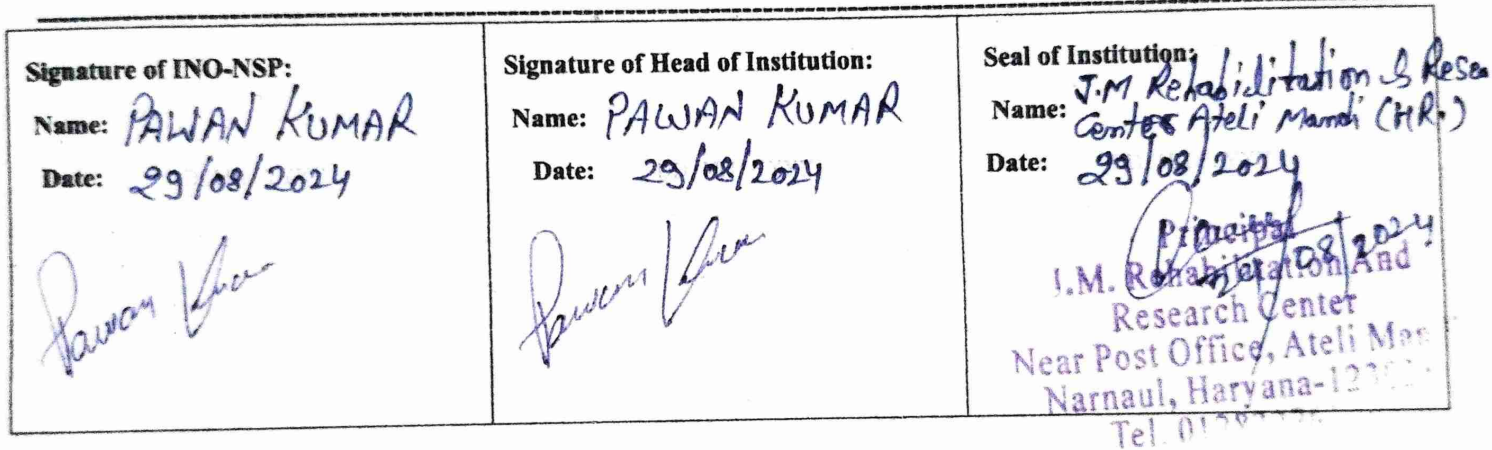 Signature of INO-NSP:
Name: PAWAN KUMAR
Date: 29/08/2024
Pawan Kumar
Signature of Head of Institution:
Name: PAWAN KUMAR
Date: 29/08/2024
Pawan Kumar
Seal of Institution:
J.M Rehabilitation & Resea
Name: Center Ateli Mandi (HR.)
Date: 29/08/2024
Principal
/08/2024
J.M. Rehabilitation And
Research Center
Near Post Office, Ateli Man
Narnaul, Haryana-
Tel.